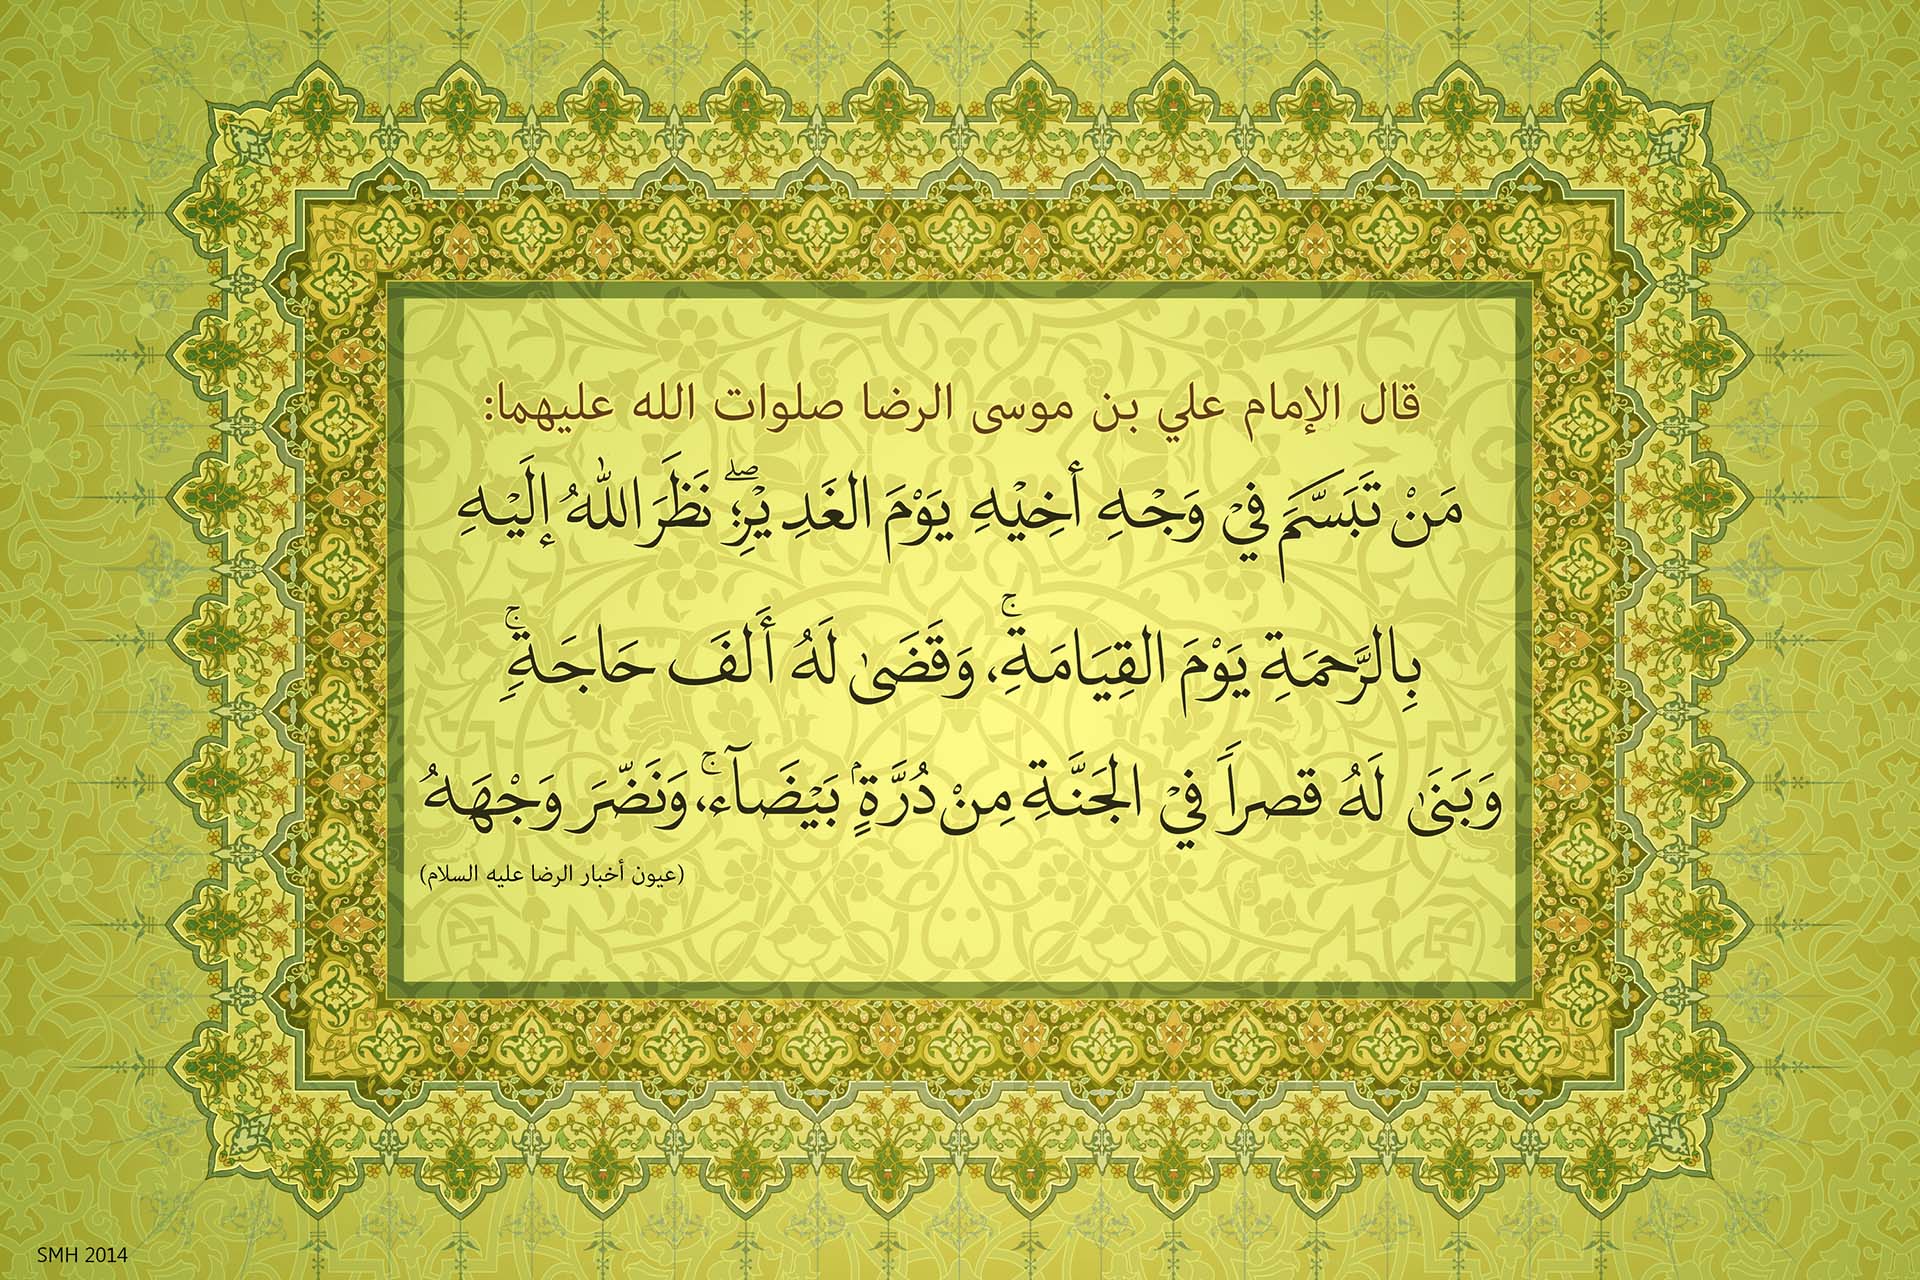 قال الإمام علي بن موسى الرضا صلوات الله عليهما:
مَنْ تَبَسَّمَ فِيْ وَجْهِ أَخِيْهِ يَوْمَ الغَدِيْرِۖ؛ نَظَرَ اللّٰهُ إِلَيْهِ
بِالرَّحمَةِ يَوْمَ القِيَامَةِۚ، وَقَضَىٰ لَهُ أَلفَ حَاجَةٍۚ
وَبَنَىٰ لَهُ قصراً فِيْ الجَنَّةِ مِنْ دُرَّةٍۭ بَيْضَآءۚ، وَنَضّرَ وَجْهَهُ
(عيون أخبار الرضا عليه السلام)
SMH 2014